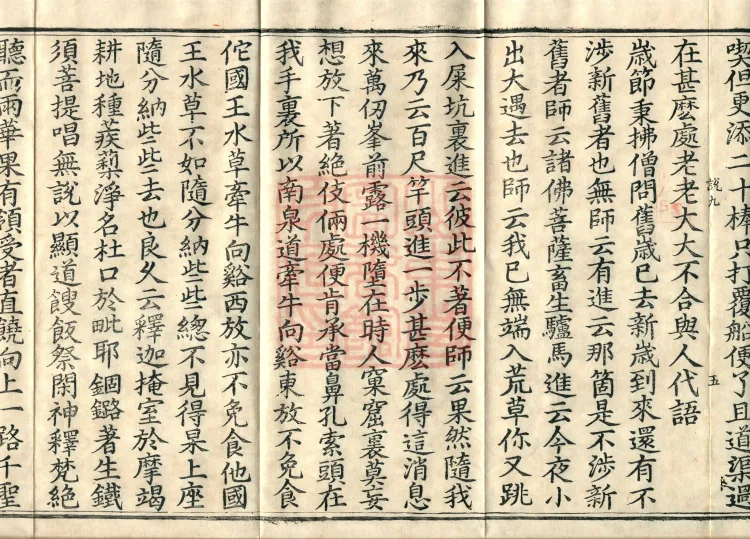 喫但更添二十棒只打覆船便了且道渠過
在甚麽處老老大大不合與人代語
說九
五
歲節秉拂僧問舊歲已去新歲到來還有不
涉新舊者也無師云有進云那箇是不涉新
舊者師云諸佛菩薩畜生驢馬進云今夜小
出大遇去也師云我已無端入荒草你又跳
入屎坑裏進云彼此不著便師云果然隨我
來乃云百尺竿頭進一步甚麽處得這消息
來萬仞峯前露一機墮在時人窠窟裏莫妄
想放下著絶伎倆處便肯承當鼻孔索頭在
我手裏所以南泉道牽牛向谿東放不免食
佗國王水草牽牛向谿西放亦不免食他國
王水草不如隨分納些些總不見得杲上座
隨分納些些去也良久云釋迦掩室於摩竭
耕地種蒺䔧淨名杜口於毗耶錮鏴著生鐵
須菩提唱無說以顯道餿飯祭閑神釋梵絶
聽而雨華果有領受者直饒向上一路千聖